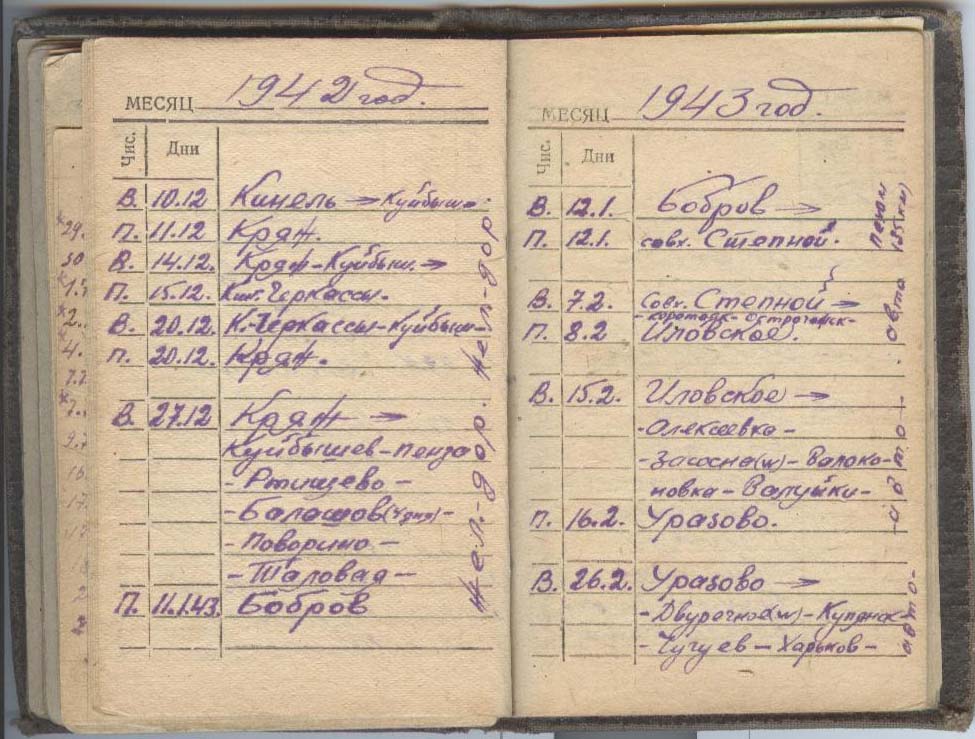 МЕСЯЦ 1942 год.
Чис. Дни
В. 10.12 Кинель → Куйбыш.
П. 11.12 Кряж.
В. 14.12. Кряж-Куйбыш. →
П. 15.12. Кин. Черкассы.
В. 20.12. К.-Черкассы-Куйбыш-
П. 20.12. Кряж.
В. 27.12 Кряж →
Куйбышев-Пенза
-Ртищево-
-Балашов
-Поворино-
-Таловая-
П. 11.1.43. Бобров
жел-дор.
жел.-дор.
МЕСЯЦ 1943 год.
Чис. Дни
В. 12.1. Бобров →
П. 12.1. совх. Степной.
В. 7.2. Совх. Степной →
-коротояк- острогожск-
П. 8.2 Иловское.
В. 15.2. Иловское →
-Алексеевка-
-Засосна(w)-Валоко-
новка-Валуйки-
П. 16.2. Уразово.
В. 26.2. Уразово →
-Двуречное(w)-Купянск
-Чугуев-Харьков-
пехом
135 км)
авто
-авто-
авто-